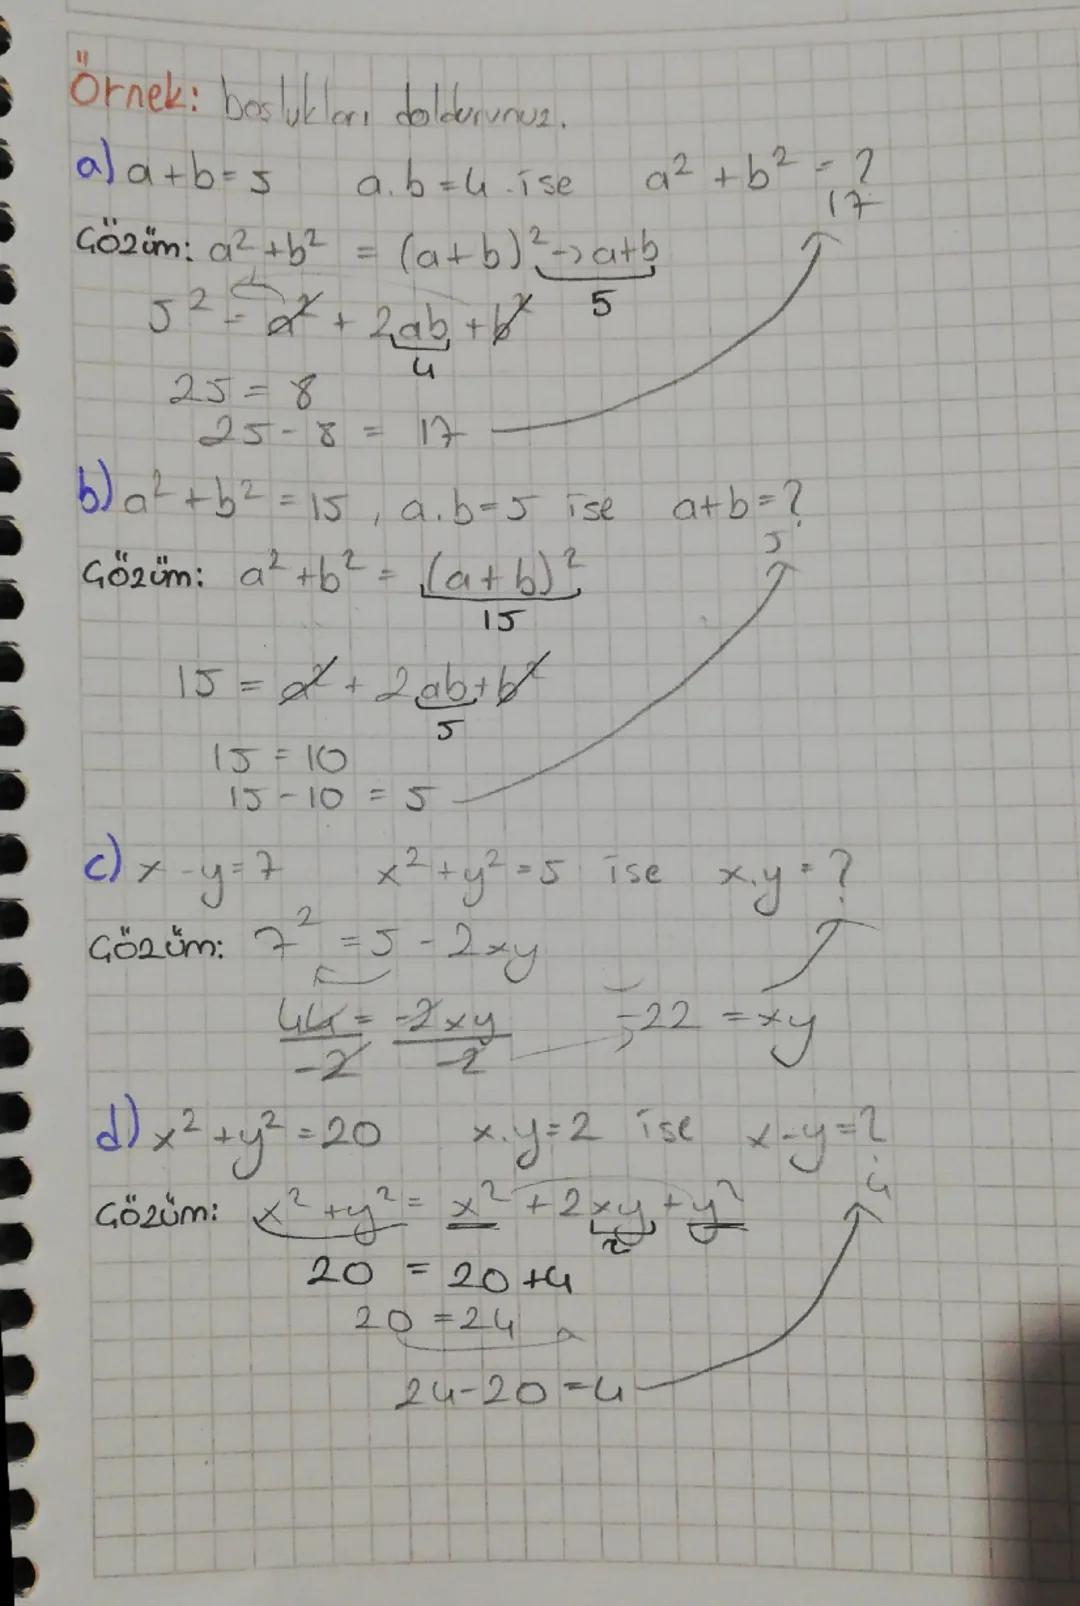 Örnek: boşlukları doldurunuz.
a) a+b=5 a.b=4 ise a²+b²=?
17
Çözüm: a²+b² = (a+b)² → a+b
5
5² = a² + 2ab + b²
4
25 = 8
25-8 = 17
b) a²+b²=15, a.b=5 ise a+b=?
5
Çözüm: a²+b² = (a+b)²
15
15 = a² + 2ab + b²
5
15 = 10
15-10 = 5
c) x-y=7 x²+y²=5 ise x.y=?
Çözüm: 7² = 5 - 2xy
44 = -2xy -22 = xy
-2 -2
d) x²+y²=20 x.y=2 ise x-y=?
4
Çözüm: x²+y² = x² + 2xy + y²
2
20 = 20+4
20 = 24
24-20=4